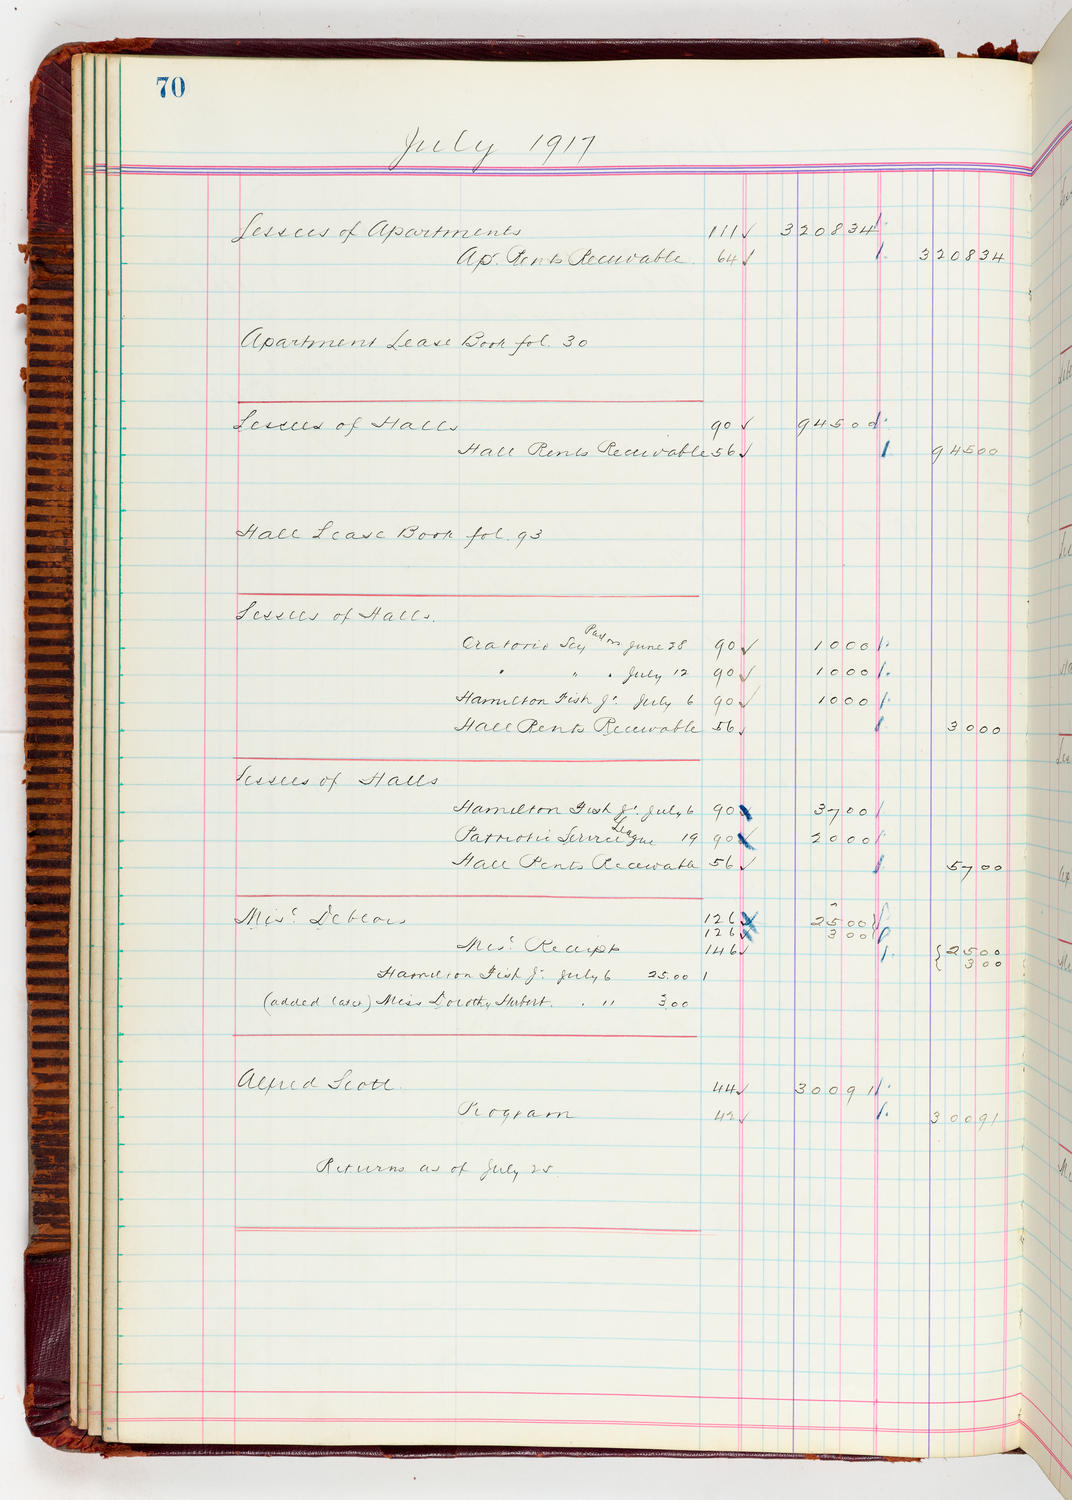 70
July 1917
Lessees of Apartments 111 ✓ 3208 34
Ap. Rents Receivable. 64 ✓ 3208 34
Apartment Lease Book fol. 30
Lessees of Halls 90 ✓ 945 00
Hall Rents Receivable 56 ✓ 945 00
Hall Lease Book fol. 93
Lessees of Halls.
Oratorio Socy June 28 90 ✓ 10 00
" " " July 12 90 ✓ 10 00
Hamilton Fish Jr. July 6 90 ✓ 10 00
Hall Rents Receivable 56 ✓ 30 00
Lessees of Halls
Hamilton Fish Jr. July 6 90 ✓ 37 00
Patriotic Service League 19 90 ✓ 20 00
Hall Rents Receivable 56 ✓ 57 00
Misc. Debtors 126 ✓ 25 00
126 ✓ 3 00
Misc. Receipts 146 ✓ 25 00
3 00
Hamilton Fish Jr. July 6 25.00
(added later) Miss Dorothy . " 3.00
Alfred Scott. 44 ✓ 300 91
Program 42 ✓ 300 91
Returns as of July 25